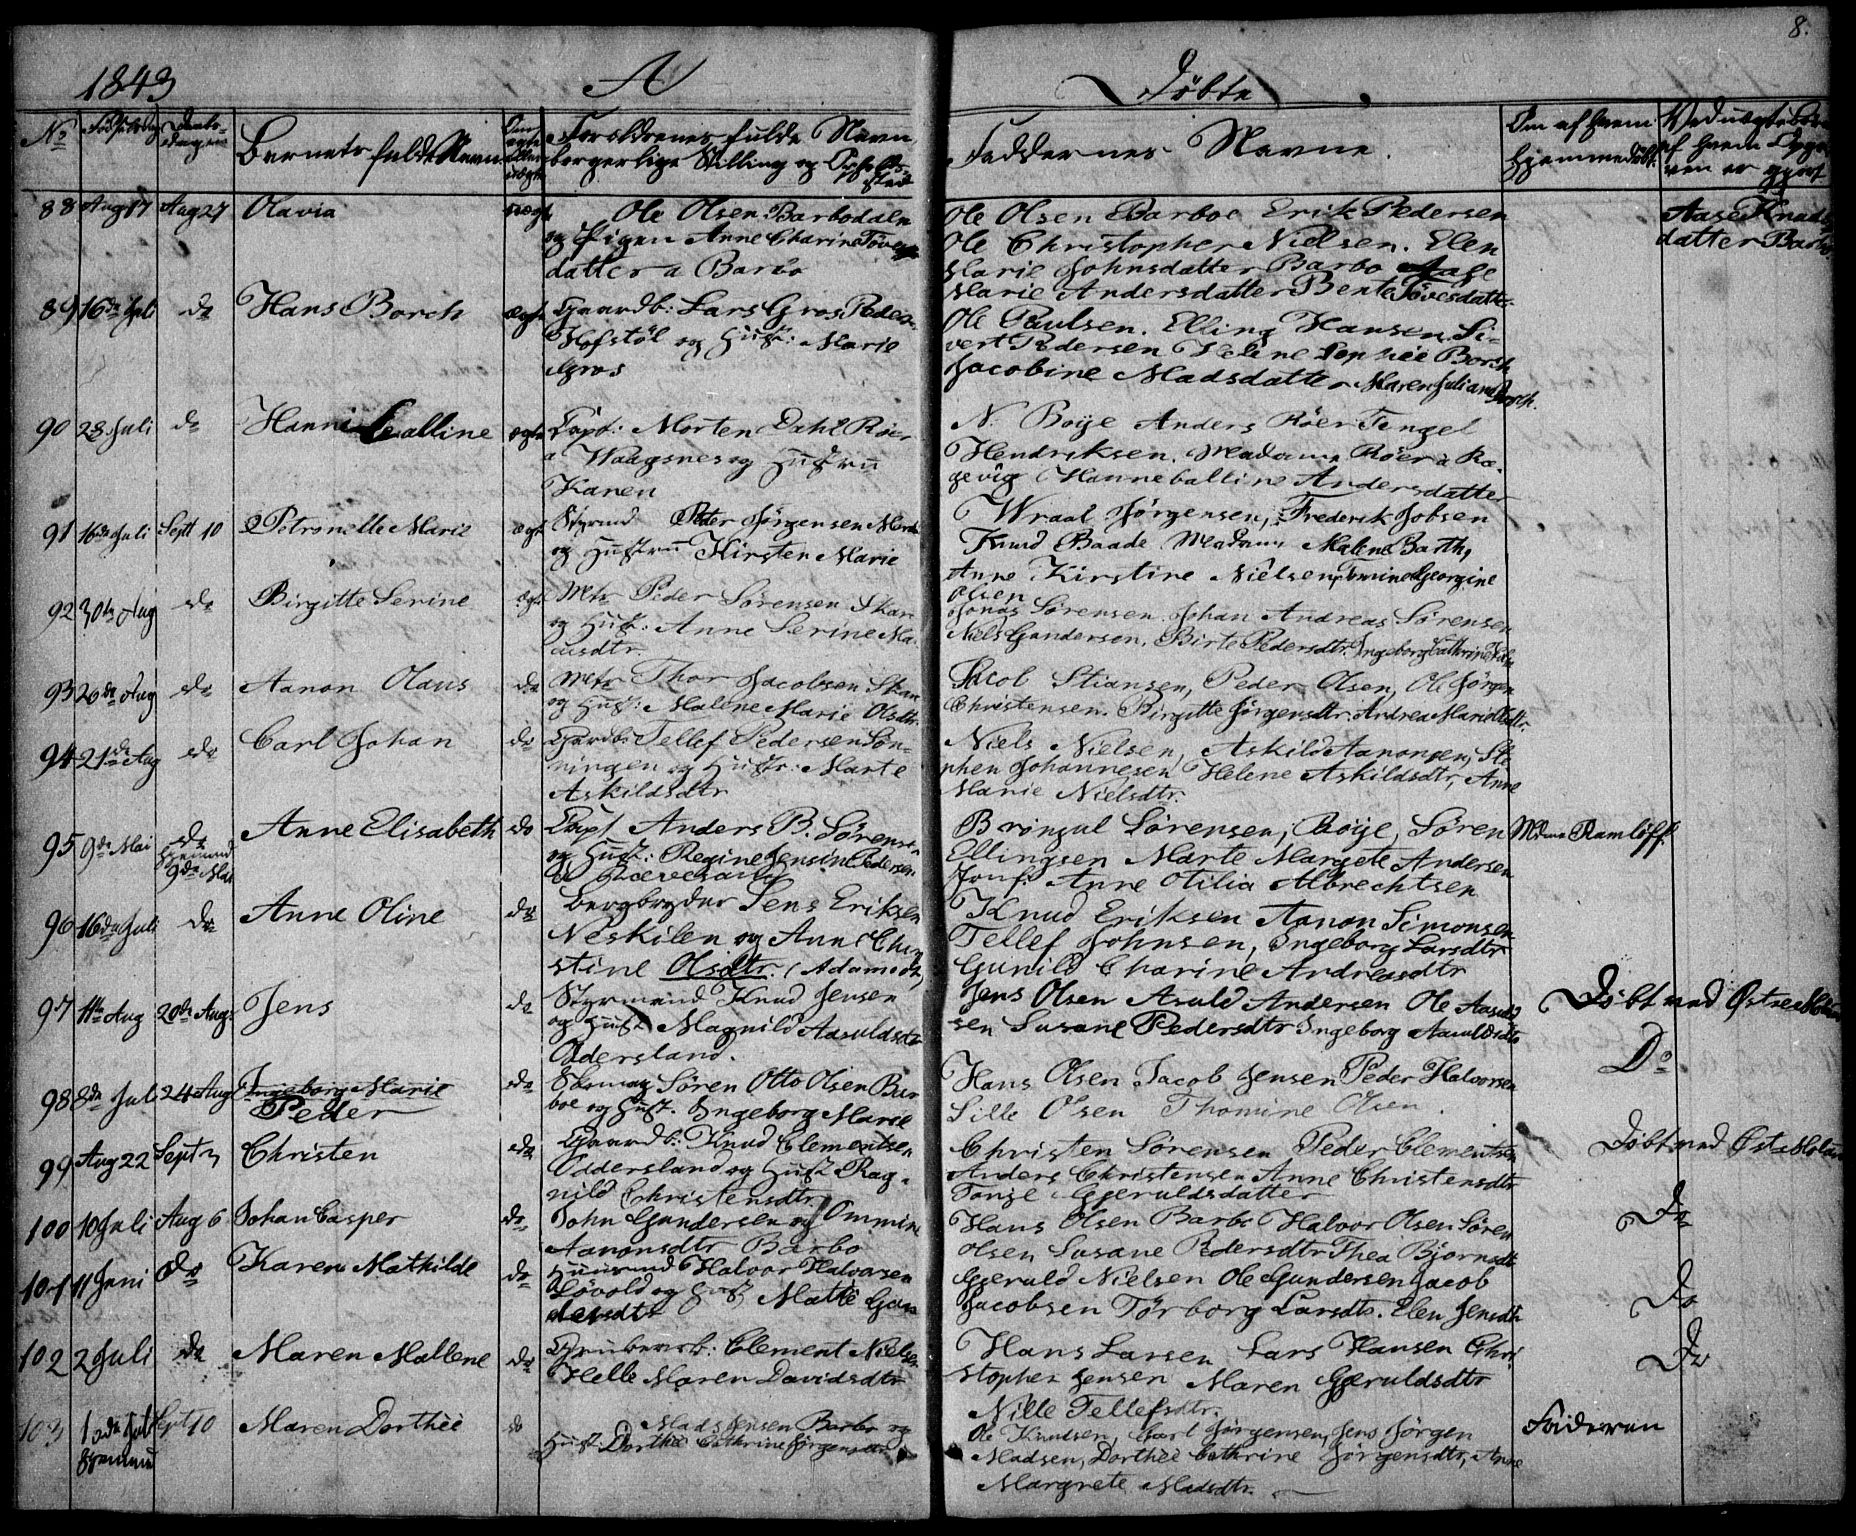 8.
1843 A Døbte
No Fødselsdag Daabsdagen Barnets fulde Navn Om ægte eller uægte Forældrenes fulde Navn, borgerlige Stilling og Opholdssted Faddernes Navne. Om af hvem hjemmedøbt. Ved uægte af hvem er gjort
88 Aug 17 Aug 27 Olavia uægt Ole Olsen Barbodalen
og Pigen Anne Charine Tøves
datter a Barbo
Ole Olsen Barboe Erik Pedersen
Ole Christopher Nielsen. Elen
Marie Johnsdatter Barbo Aase
Marie Andersdatter Bente Tøvesdatter
Aase Knuds
datter Barbo
89 16de Juli do Hans Borch ægt Gaardb: Lars Gros Peder
Hofstøl og Hust: Marie
Gros
Ole Paulsen. Elling Hansen. Si-
vert Pedersen Helene Sophie Borch
Jacobine Madsdatter Maren Juliane Borch.
90 23 Juli do Hanne Calline ægt Capt: Morten Dahl Röer
a Waagsnes og Hustru
Karen
N. Boije Anders Röer Tengel
Hendriksen. Madame Röer a Ra-
gevig Hanneballine Andersdatter
91 16de Juli Sept 10 Petronelle Marie ægt Styrmd Peder Jørgensen
og Hustru Kirsten Marie
Wraal Jørgensen, Frederik Jobsen
Knud Baade Madame Malene Barth,
Anne Kirstine Nielsen, Tomine Georgine
Olsen
92 30te Aug do Birgitte Serine ægt Mtr Peder Sørensen Skar
og Hust: Anne Serine Ma-
dsdtr.
Jonas Sørensen. Johan Andreas Sørensen
Niels Gundersen. Birte Pedersdtr. Ingeborg Cathrine
93 26de Aug do Aanon Olaus do Mtr Thor Jacobsen Skar
og Hust: Malene Marie Olsdtr
Jacob Stiansen, Peder Olsen, Ole Jørgen
Christensen. Birgitte Jørgensdtr. Andrea Marie
94 21de Aug do Carl Johan do Gardb: Tellef Pedersen Søn-
ningen og Hustr: Marte
Askildsdtr
Niels Nielsen, Askild Aanonsen, Ste
phen Johannesen Helene Askildsdtr, Anne
Marie Nielsdtr.
95 9de Mai do Hjemmed 9de Mai Anne Elisabeth do Capt Anders B. Sørensen
og Hust: Regine Jensine Pedersen
a Rævesand
Børingul Sørensen, Boije, Søren
Ellingsen Marte Margete Andersen
Jonf: Anne Otilia Albrechtsen
Mdme Ramløff.
96 16de Juli do Anne Oline do Bergbryder Jens Eriksen
Neskilen og Anne Chri
stine Olsdtr. (Adamsdt)
Knud Eriksen Aanon Simonsen
Tellef Johnsen, Ingeborg Larsdtr
Gunild Charine Andreasdtr
97 11te Aug 20de Aug: Jens do Styrmand Knud Jensen
og Hust Magnild Aasuldsdtr
Oddersland.
Jens Olsen Asuld Andersen Ole Aasuld
sen Susane Pedersdtr Ingeborg Aasuldsdtr
Døbt ved Østre Moland
98 8de Jul 24 Aug Ingeborg Marie
Peder do Søren Otto Olsen Bar
boe og Hust. Ingeborg Marie
Hans Olsen Jacob Jensen Peder Halvorsen
Sille Olsen Thomine Olsen.
Do
99 Aug 22 Sept 3 Christen do Gaardb: Knud Clementsen
Oddersland og Hust Rag-
nild Christensdtr
Christen Sørensen Peder Clementsen
Anders Christensen Anne Christensdtr
Tonje Gjeruldsdatter
Døbt ved Øst: Moland
100 10 Juli Aug 6 Johan Casper do John Gundersen og Ommine
Aanonsdtr Barbo
Hans Olsen Barbo Halvor Olsen Søren
Olsen Susane Pedersdtr Thea Bjørnsdtr
Do
101 11 Juni do Karen Mathilde do Huusmd Halvor Halvorsen
Løvold og Hust Matte Gun
dersdtr
Gjeruld Nielsen Ole Gundersen Jacob
Jacobsen Törborg Larsdtr. Elen Jensdtr
Do
102 2 Juli do Maren Mallene do Grubearb: Clement Nielsen
Helle Maren Davidsdtr
Hans Larsen Lars Hansen Chri
stopher Jensen Maren Gjeruldsdtr
Nille Tellefsdtr.
Do
103 10de Juli Hjemmed Sept 10 Maren Dorthee do Mads Jensen Barbo og
Hust: Dorthe Cathrine Jørgensdtr
Ole Knudsen, Carl Jørgensen, Jens Jørgen
Madsen, Dorthée Cathrine Jørgensdtr, Anne
Margrete Madsdtr.
Faderen